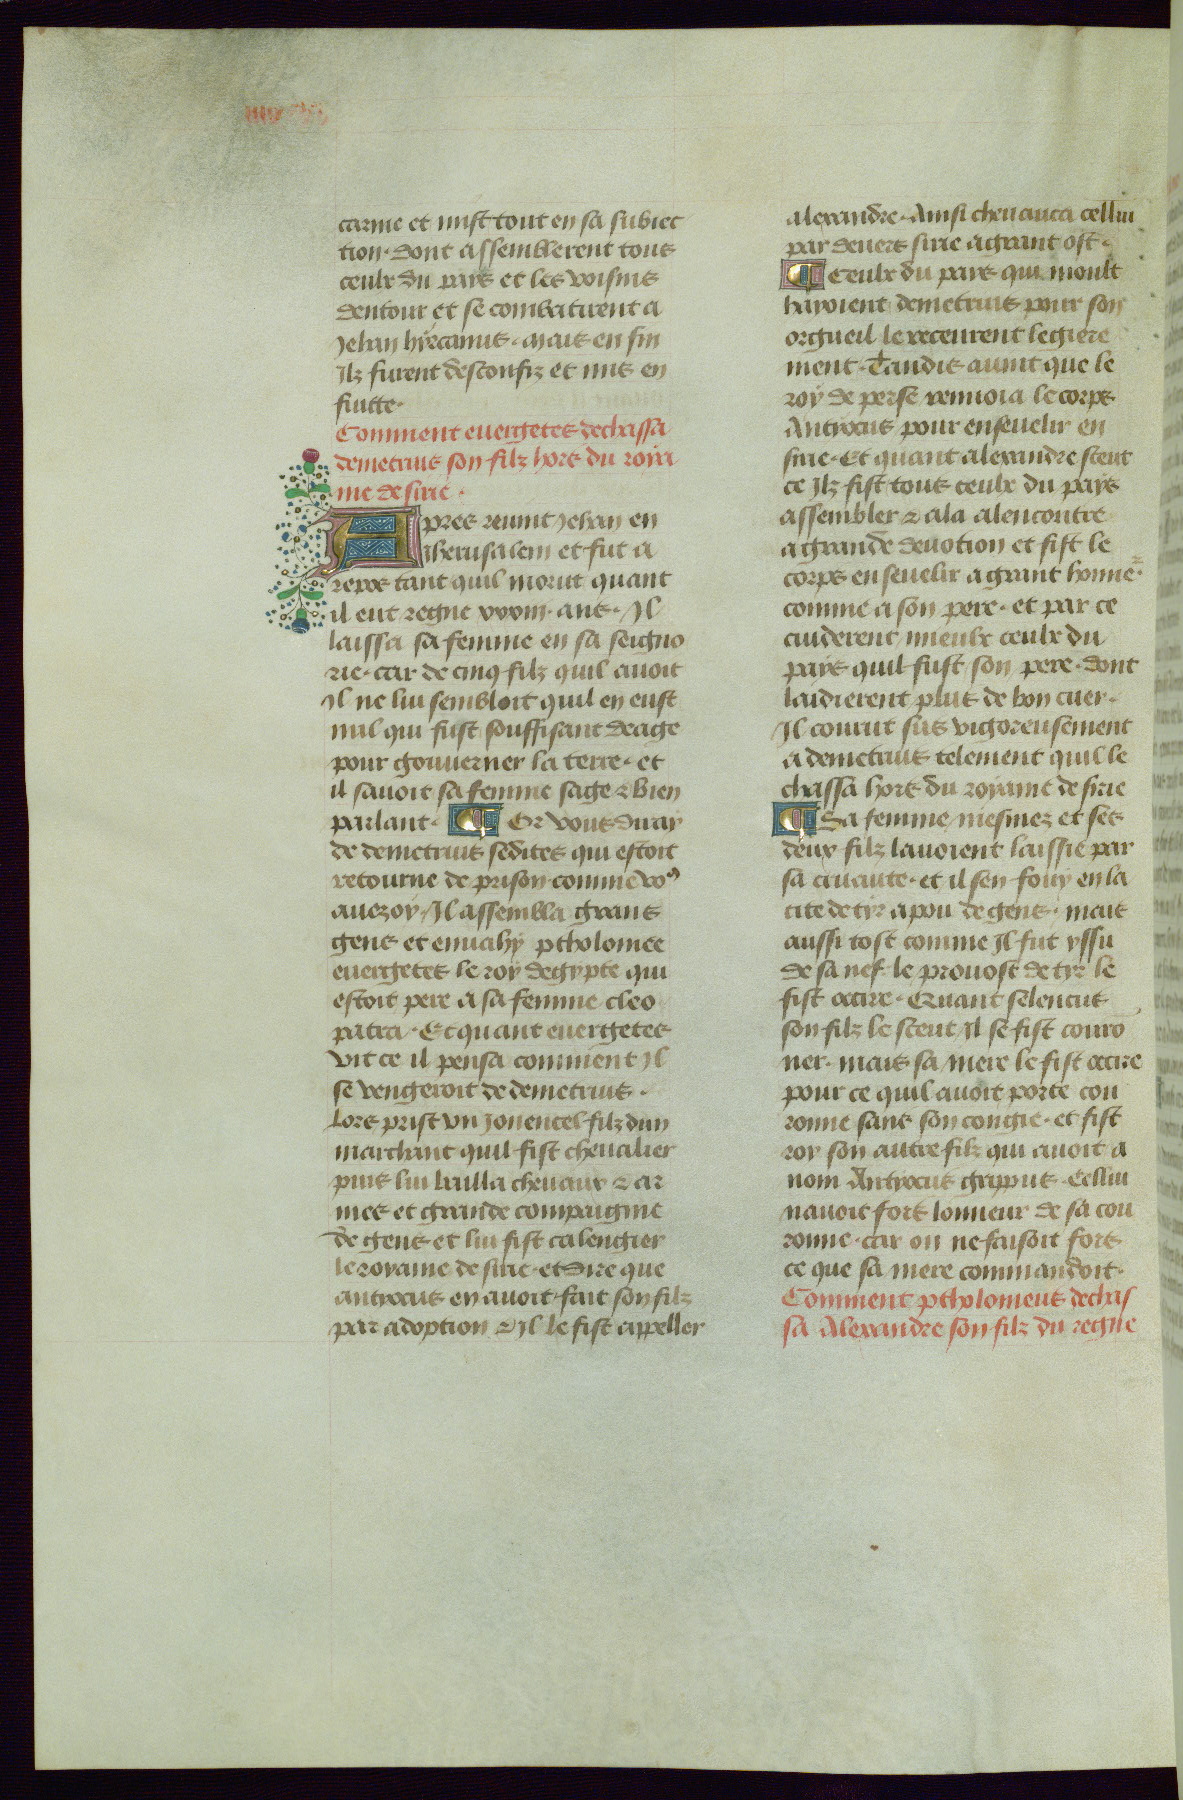 carme et mist tout en sa subiec
tion· dont assemblerent tous
ceulx du pays et les voisins
dentour et se combatirent a
Jehan hyrcanus· mais en fin
Ilz furent desconfiz et mis en
fuitte·
Comment euergetes dechassa
demetrius son filz hors du roya
me de sirie·
Apres reuint Jehan en
iherusalem et fut a
repos tant quil morut quant
il eut regne xxvii· ans· Il
laissa sa femme en sa seigno
rie· car de cinq filz quil auoit
Il ne lui sembloit quil en eust
nul qui fust souffisant deage
pour gouuerner la terre· et
il sauoit sa femme sage & bien
parlant· ¶ Or vous diray
de demetrius sedites qui estoit
retourne de prison comme voꝰ
auez oy· Il assembla grans
gens et enuahy ptholomee
euergetes le roy degypte qui
estoit pere a sa femme cleo
patra· Et quant euergetes
vit ce il pensa comment Il
se vengeroit de demetrius·
Lors prist vn Jouencel filz dun
marchant quil fist cheualier
puis lui bailla cheuaux & ar
mes et grande compaignie
de gens et lui fist calengier
le royame de sirie· et dire que
antiocus en auoit fait son filz
par adoption & Il le fist appeller
alexandre· Ainsi cheuauca cellui
par deuers sirie a grant ost·
¶ Ceulx du pays qui moult
hayoient demetrius pour son
orgueil le receurent legiere
ment· Tandis auint que le
roy de perse renuoia le corps
Antiocus pour enseuelir en
sirie· Et quant alexandre sceut
ce Ilz fist tous ceulx du pays
assembler & ala alencontre
a grande deuotion et fist le
corps enseuelir a grant honne
comme a son pere· et par ce
cuiderent mieulx ceulx du
pays quil fust son pere· dont
laidierent plus de bon cuer·
Il courut sus vigoreusement
a demetrius telement quil le
chassa hors du royame de sirie
¶ Sa femme mesmez et ses
deux filz lauoient laissie par
sa cruaute· et il sen fouy en la
cite de tyr a pou de gens· mais
aussi tost comme Il fut yssu
de sa nef le prouost de tyr le
fist occire· Quant seleucus
son filz le sceut Il se fist courō
ner· mais sa mere le fist occire
pour ce quil auoit porte cou
ronne sans son congie· et fist
roy son autre filz qui auoit a
nom Antiocus grippus· Cellui
nauoit fors lonneur de sa cou
ronne· car on ne faisoit fors
ce que sa mere commandoit·
Comment ptholomeus dechas
sa Alexandre son filz du regne